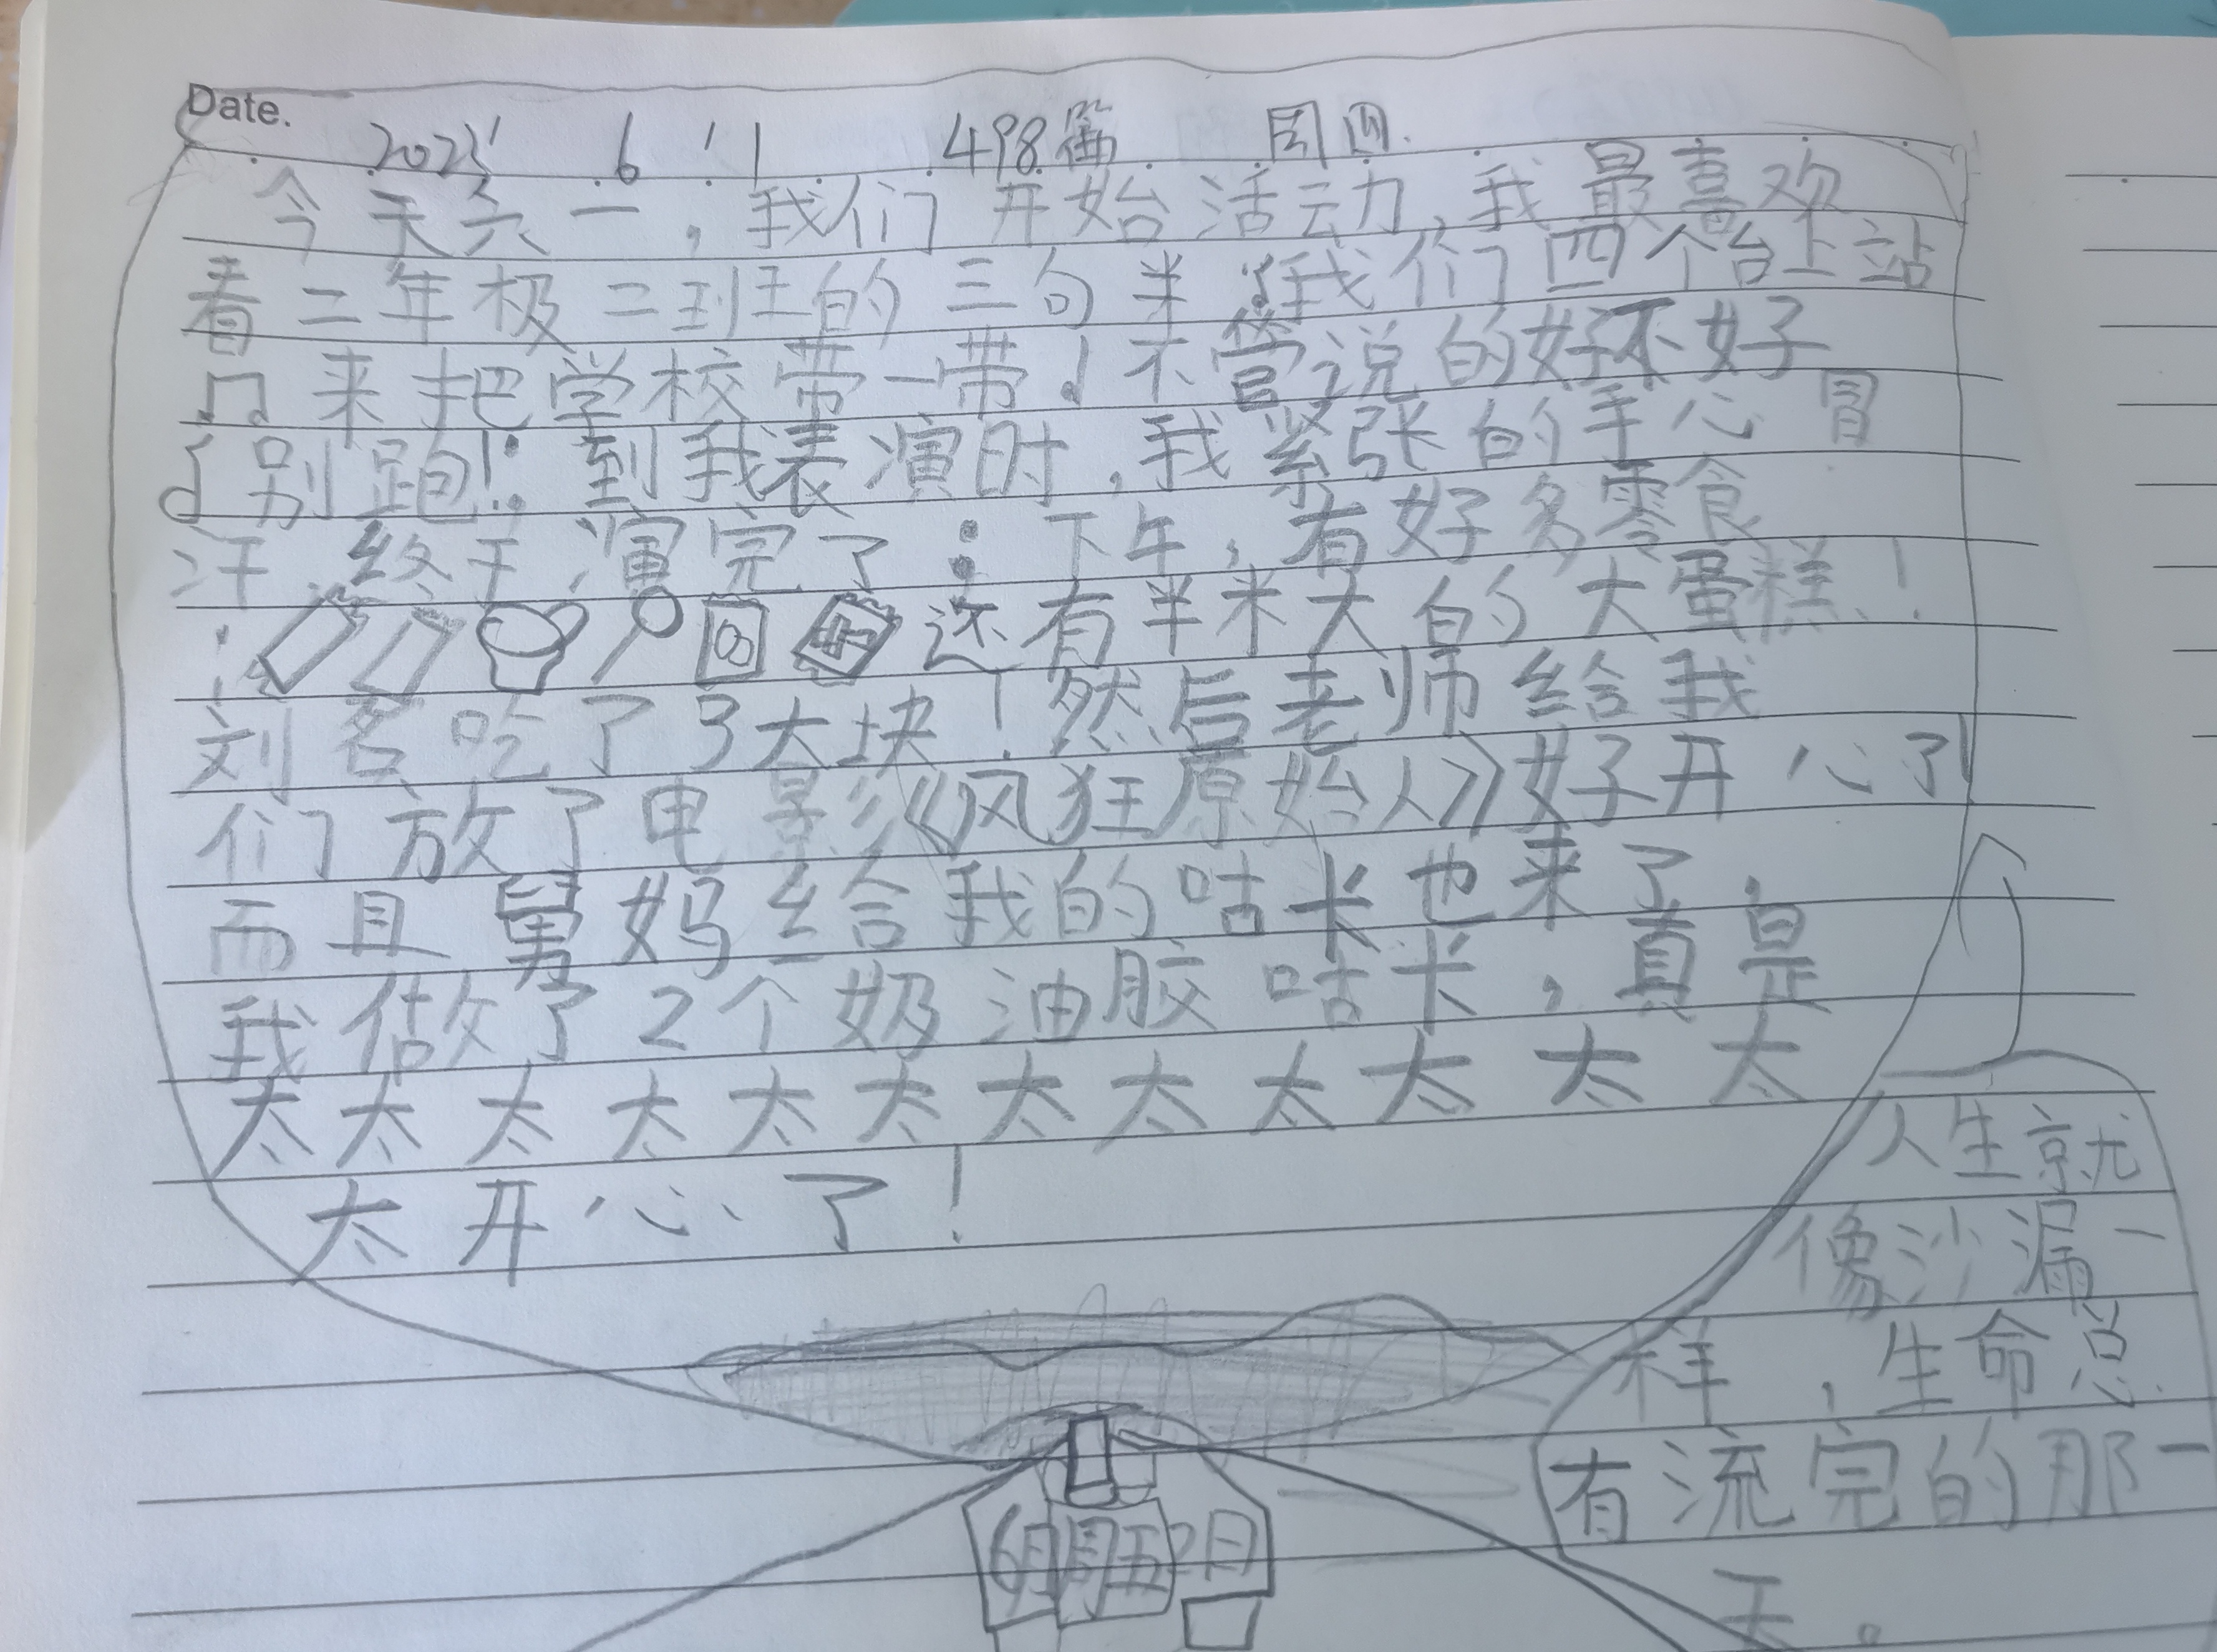 Date.
2023 6 1 498篇 周四.
今天六一，我们开始活动，我最喜欢
看二年极二班的三句半：♪我们四个台上站
♫来把学校带一带♩不管说的好不好
♪别跑！到我表演时，我紧张的手心冒
汗，终于演完了：下午，有好多零食
：还有半米大的大蛋糕！
刘名吃了3大块！然后老师给我
们放了电影《风狂原始人》好开心了！
而且舅妈给我的咕卡也来了，
我做了2个奶油胶咕卡，真是
太太太太太太太太太太太太
太开心了！
人生就
像沙漏一
样，生命总
有流完的那一
天。
6月周五2日